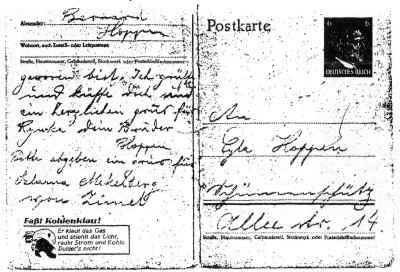 Postkarte
Absender: Bernard
Hoppen
Wohnort, auch Zustell- oder Leitpostamt
Straße, Hausnummer, Gebäudeteil, Stockwerk oder Postschließfachnummer
geworden bist. Ich grüße
und küsse dich und
ein herzlichen grus für
dein Bruder
Hoppen
Bitte abgeben ein grus für
von
Faßt Kohlenklau!
Er klaut das Gas
und stiehlt das Licht,
raubt Strom und Kohle.
Duldet's nicht!
6 6
DEUTSCHES REICH
An
Hoppen
Allee str. 14
Straße, Hausnummer, Gebäudeteil, Stockwerk oder Postschließfachnummer